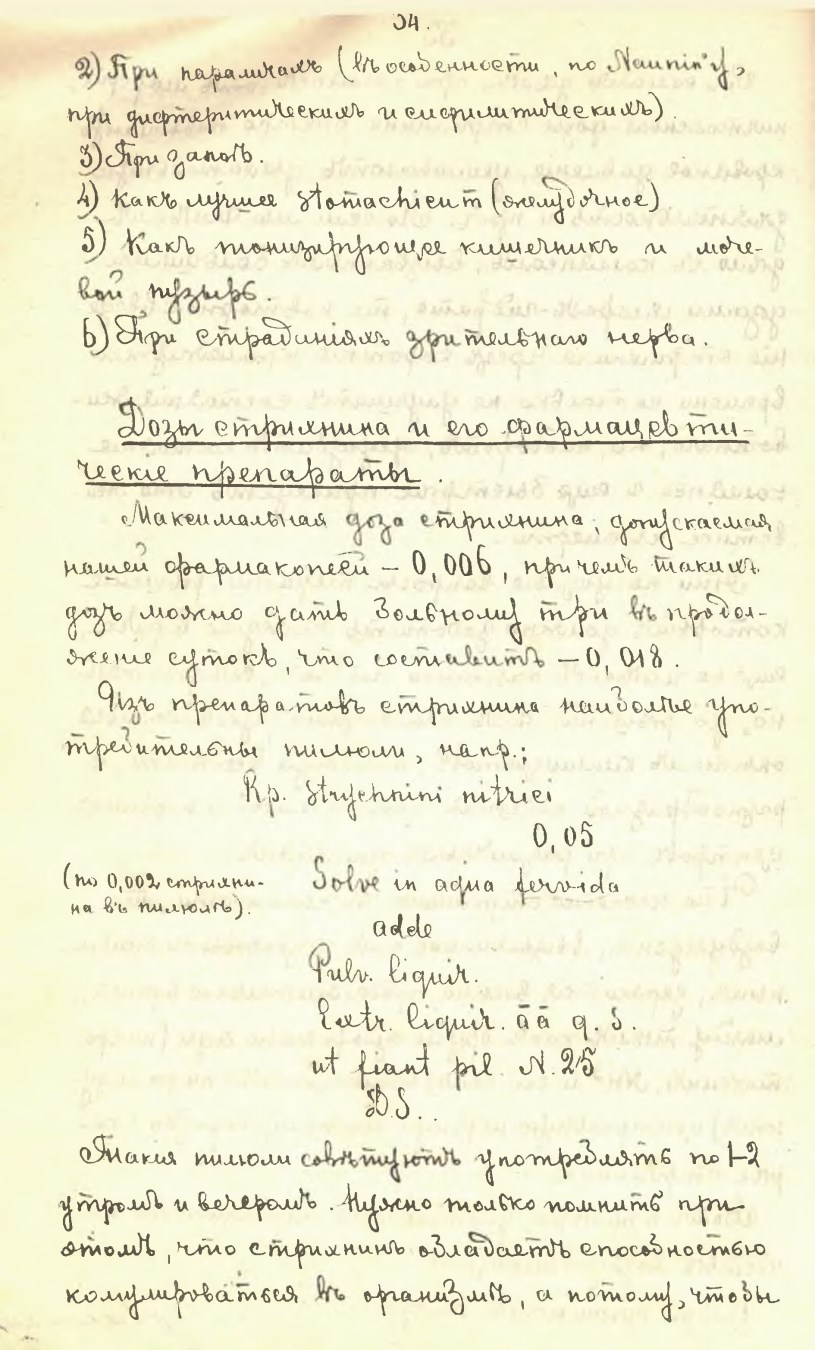 34.
2) При параличахъ (въ особенности, по Naunin'у,
при дифтеритическихъ и сифилитическихъ).
3) При запоѣ.
4) Какъ лучшее stomachicum (желудочное)
5) Какъ тонизирующее кишечникъ и моче-
вой пузырь.
6) При страданіяхъ зрительнаго нерва.
Дозы стрихнина и его фармацевти-
ческіе препараты.
Максимальная доза стрихнина, допускаемая
нашей фармакопеей – 0,006, причемъ такихъ
дозъ можно дать больному три въ продол-
женіе сутокъ, что составитъ – 0,018.
Изъ препаратовъ стрихнина наиболѣе упо-
требительны пилюли, напр.:
Rp. Strychnini nitrici
0,05
(по 0,002 стрихни-
на въ пилюлѣ).
Solve in aqua fervida
adde
Pulv. liquir.
Extr. liquir. āā q. s.
ut fiant pil. N. 25
D.S..
Такія пилюли совѣтуютъ употреблять по 1-2
утромъ и вечеромъ. Нужно только помнить при
этомъ, что стрихнинъ обладаетъ способностью
комулироваться въ организмѣ, а потому, чтобы